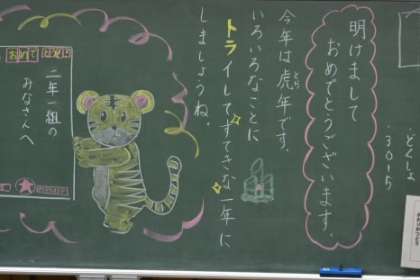 どくしょ
3015
明けまして
おめでとうございます。
今年は虎年です。
とら
いろいろなことに
トライしてすてきな一年に
しましょうね。
おめで
二年一組の
みなさんへ